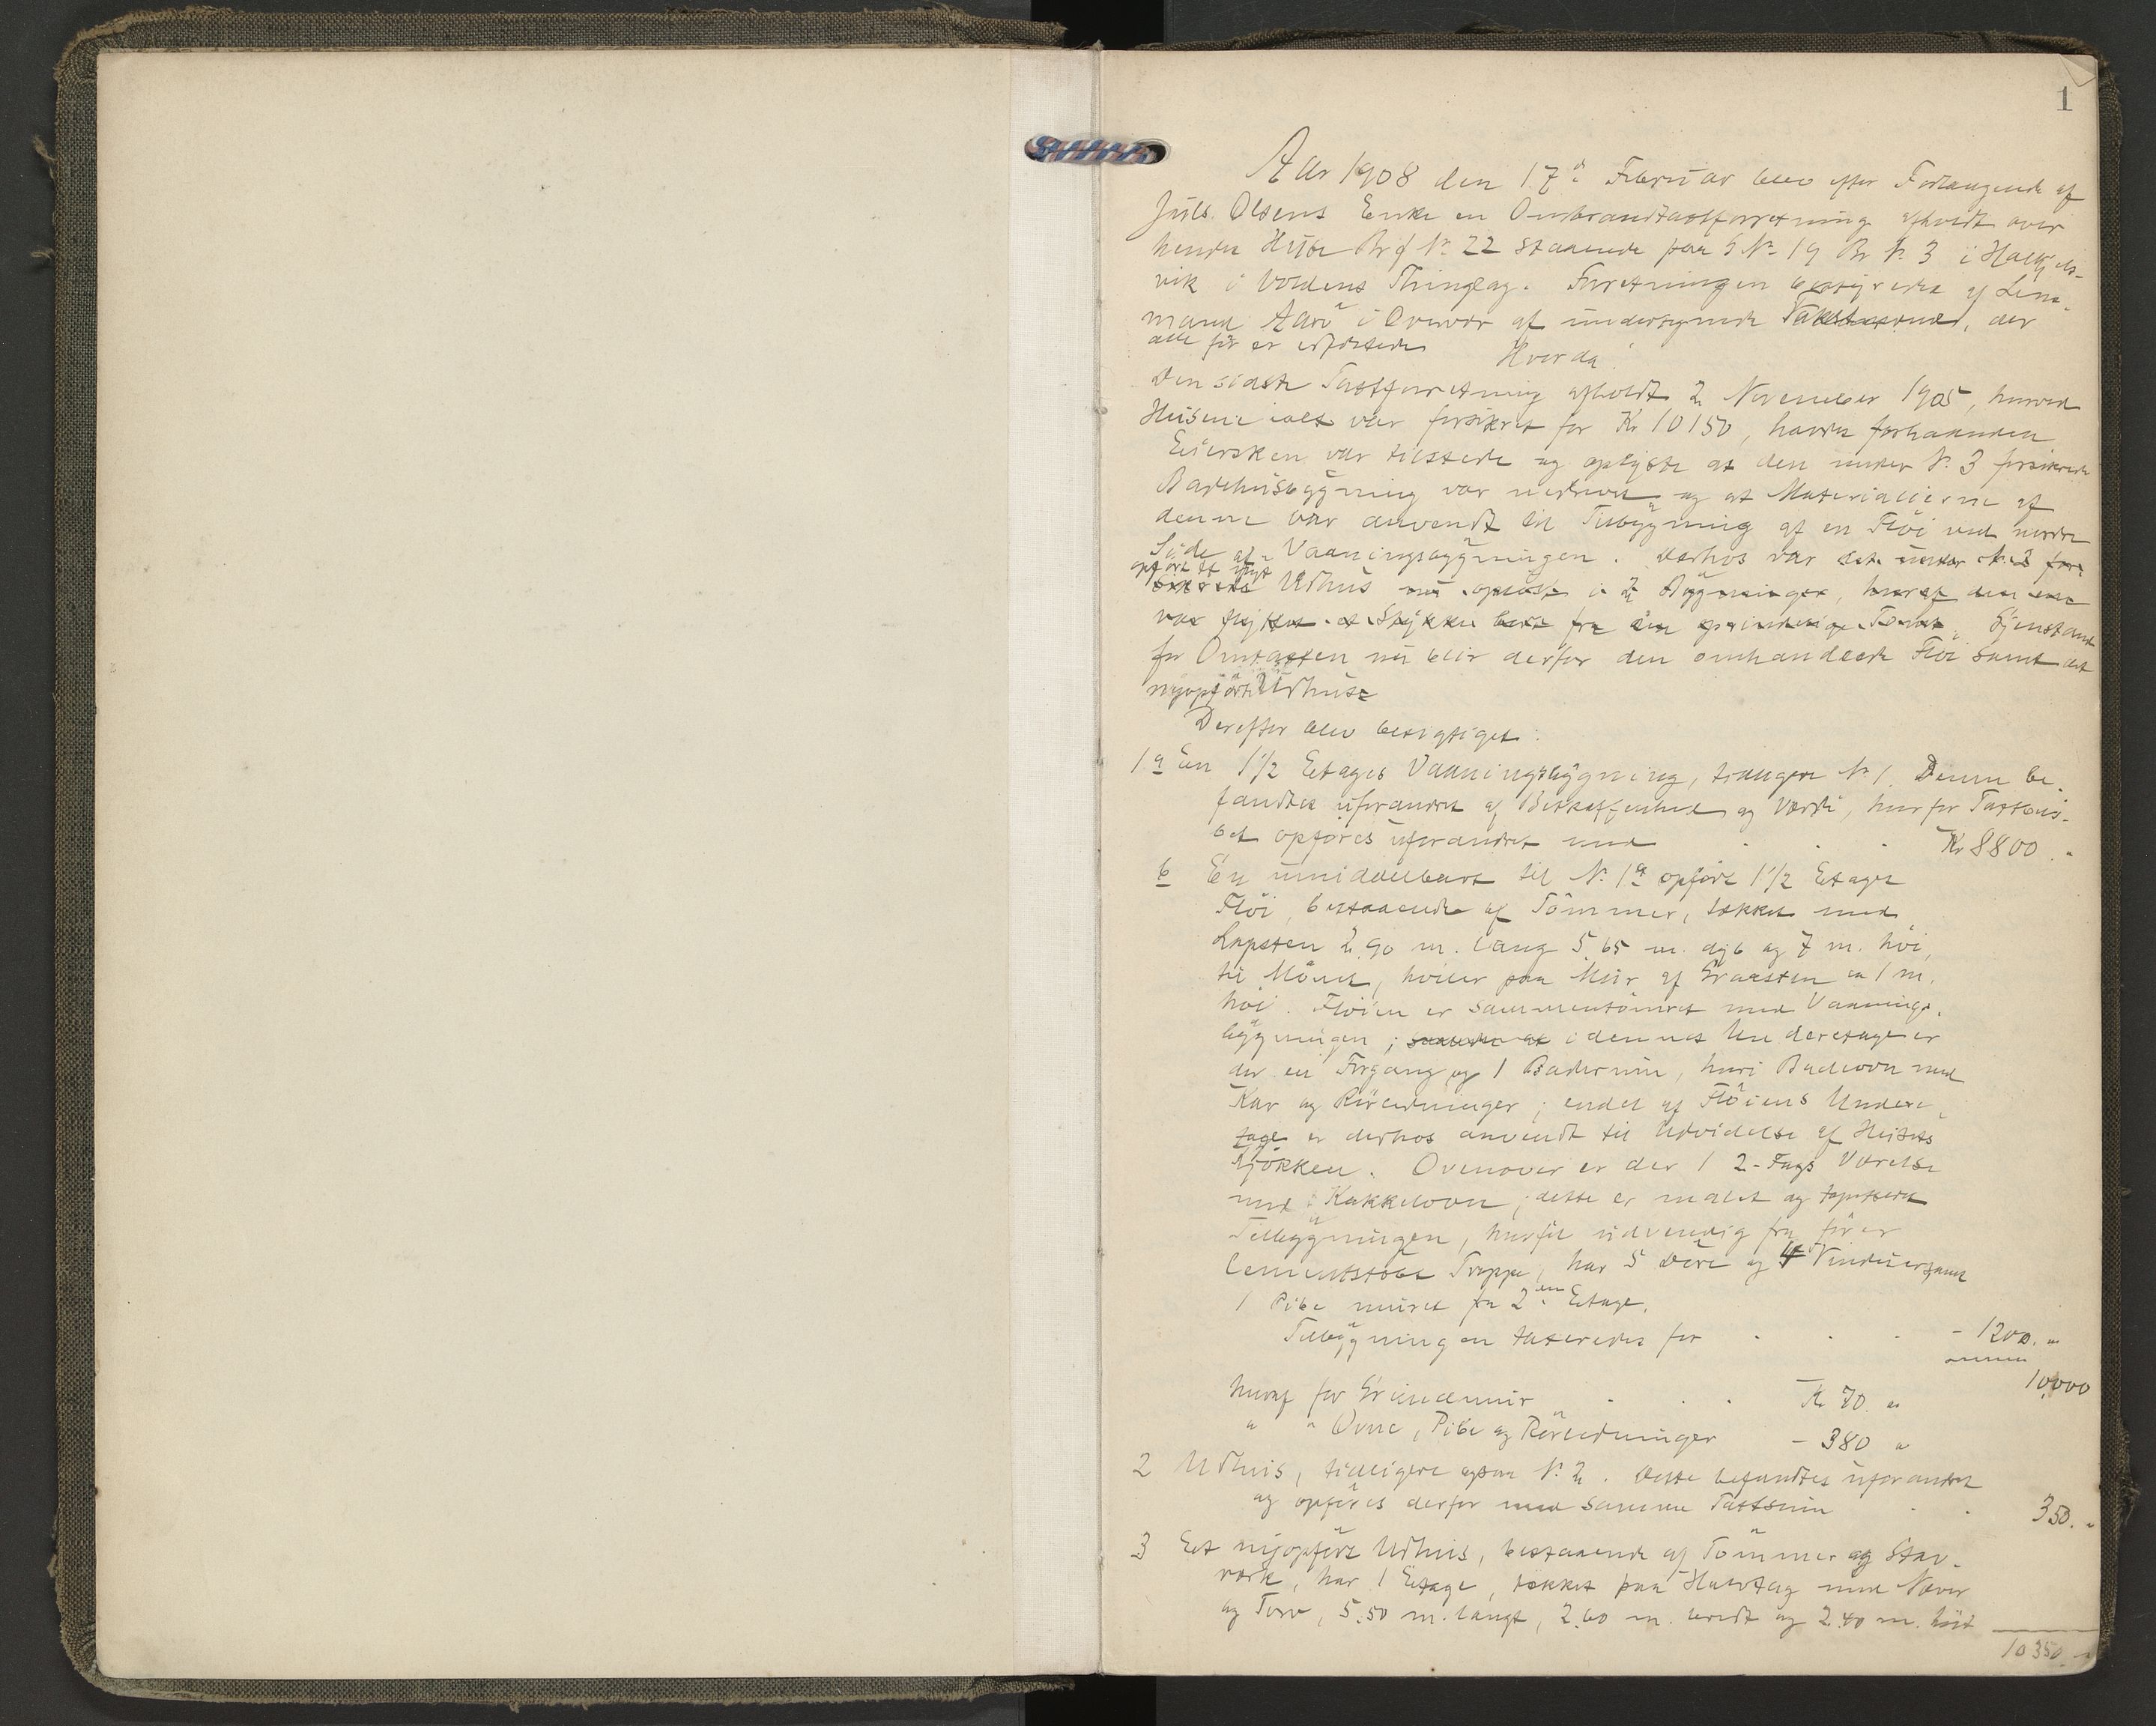 1
Aar 1908 den 17de Februar blev efter Forlangende af
Juls. Olsens Enke en Ombrandtaxtforretning afholdt over
hendes Huse Br f No 22 staaende paa G No 19 Br No 3 i Halkjels-
vik i Voldens Thinglag. Forretningen bestyredes af Lens-
mand Aarø i Overvær af undertegnede Takstmænd, der
alle før er edfæstede
Hvorda:
Den sidste Taxtforretning afholdt 2 November 1905, hvorved
Husene ialt var forsikret for Kr 10150, havdes forhaanden
Eiersken var tilstede og oplyste at den under No 3 forsikrede
Badehusbygning var nedrevet og at Materialierne af
denne var anvendt til Tilbygning af en Fløi ved nordre
Side af Vaaningsbygningen. Derhos var det under No 2 for-
opført et nyt
sikrede Udhus nu opløst i 2 Bygninger, hvoraf den ene
var flyttet et Stykke bort fra den oprindelige Tomt. Gjenstand
for Omtaxten nu blir derfor den omhandlede Fløi samt det
nyopførte Udhus
Derefter blev besigtiget:
1 a En 1 1/2 Etages Vaaningsbygning, tidligere No 1. Denne be-
fandtes uforandret af Beskaffenhed og Værdi, hvorfor Taxtbelø-
bet opføres uforandret med . . . Kr 8800 "
b En umiddelbart til No 1a opført 1 1/2 Etages
Fløi, bestaaende af Tømmer, tækket med
Lapsten 2.90 m. lang 5.65 m. dyb og 7 m. høi,
til Mønet, hviler paa Mur af Graasten ca 1 m.
høi. Fløien er sammentømret med Vaanings-
bygningen; saaledes at i dennes Underetage er
der en Forgang og 1 Baderum, hvori Badeovn med
Kar og Rørledninger; endel af Fløiens Undere-
tage er derhos anvendt til Udvidelse af Husets
Kjøkken. Ovenover er der 1 2-Fags Værelse
med Kakkelovn; dette er malet og tapetseret
Tilbygningen, hvortil udvendig fra fører
cementstøbt Trappe, har 5 Døre og 4 Vinduer samt
1 Pibe muret fra 2den Etage.
Tilbygningen taxeredes for . . . - 1200. "
10,000
hvoraf for Grundmur . . . Kr 70. "
" " Ovne, Pibe og Rørledninger - 380 "
2 Udhus, tidligere ogsaa No 2. Dette befandtes uforandret
og opføres derfor med samme Taxtsum . . 350. "
3 Et nyopført Udhus, bestaaende af Tømmer og Stav-
værk, har 1 Etage, tækket paa Halvtag med Næver
og Torv, 5.50 m. langt, 2.60 m. bredt og 2.40 m. høit
10350. "